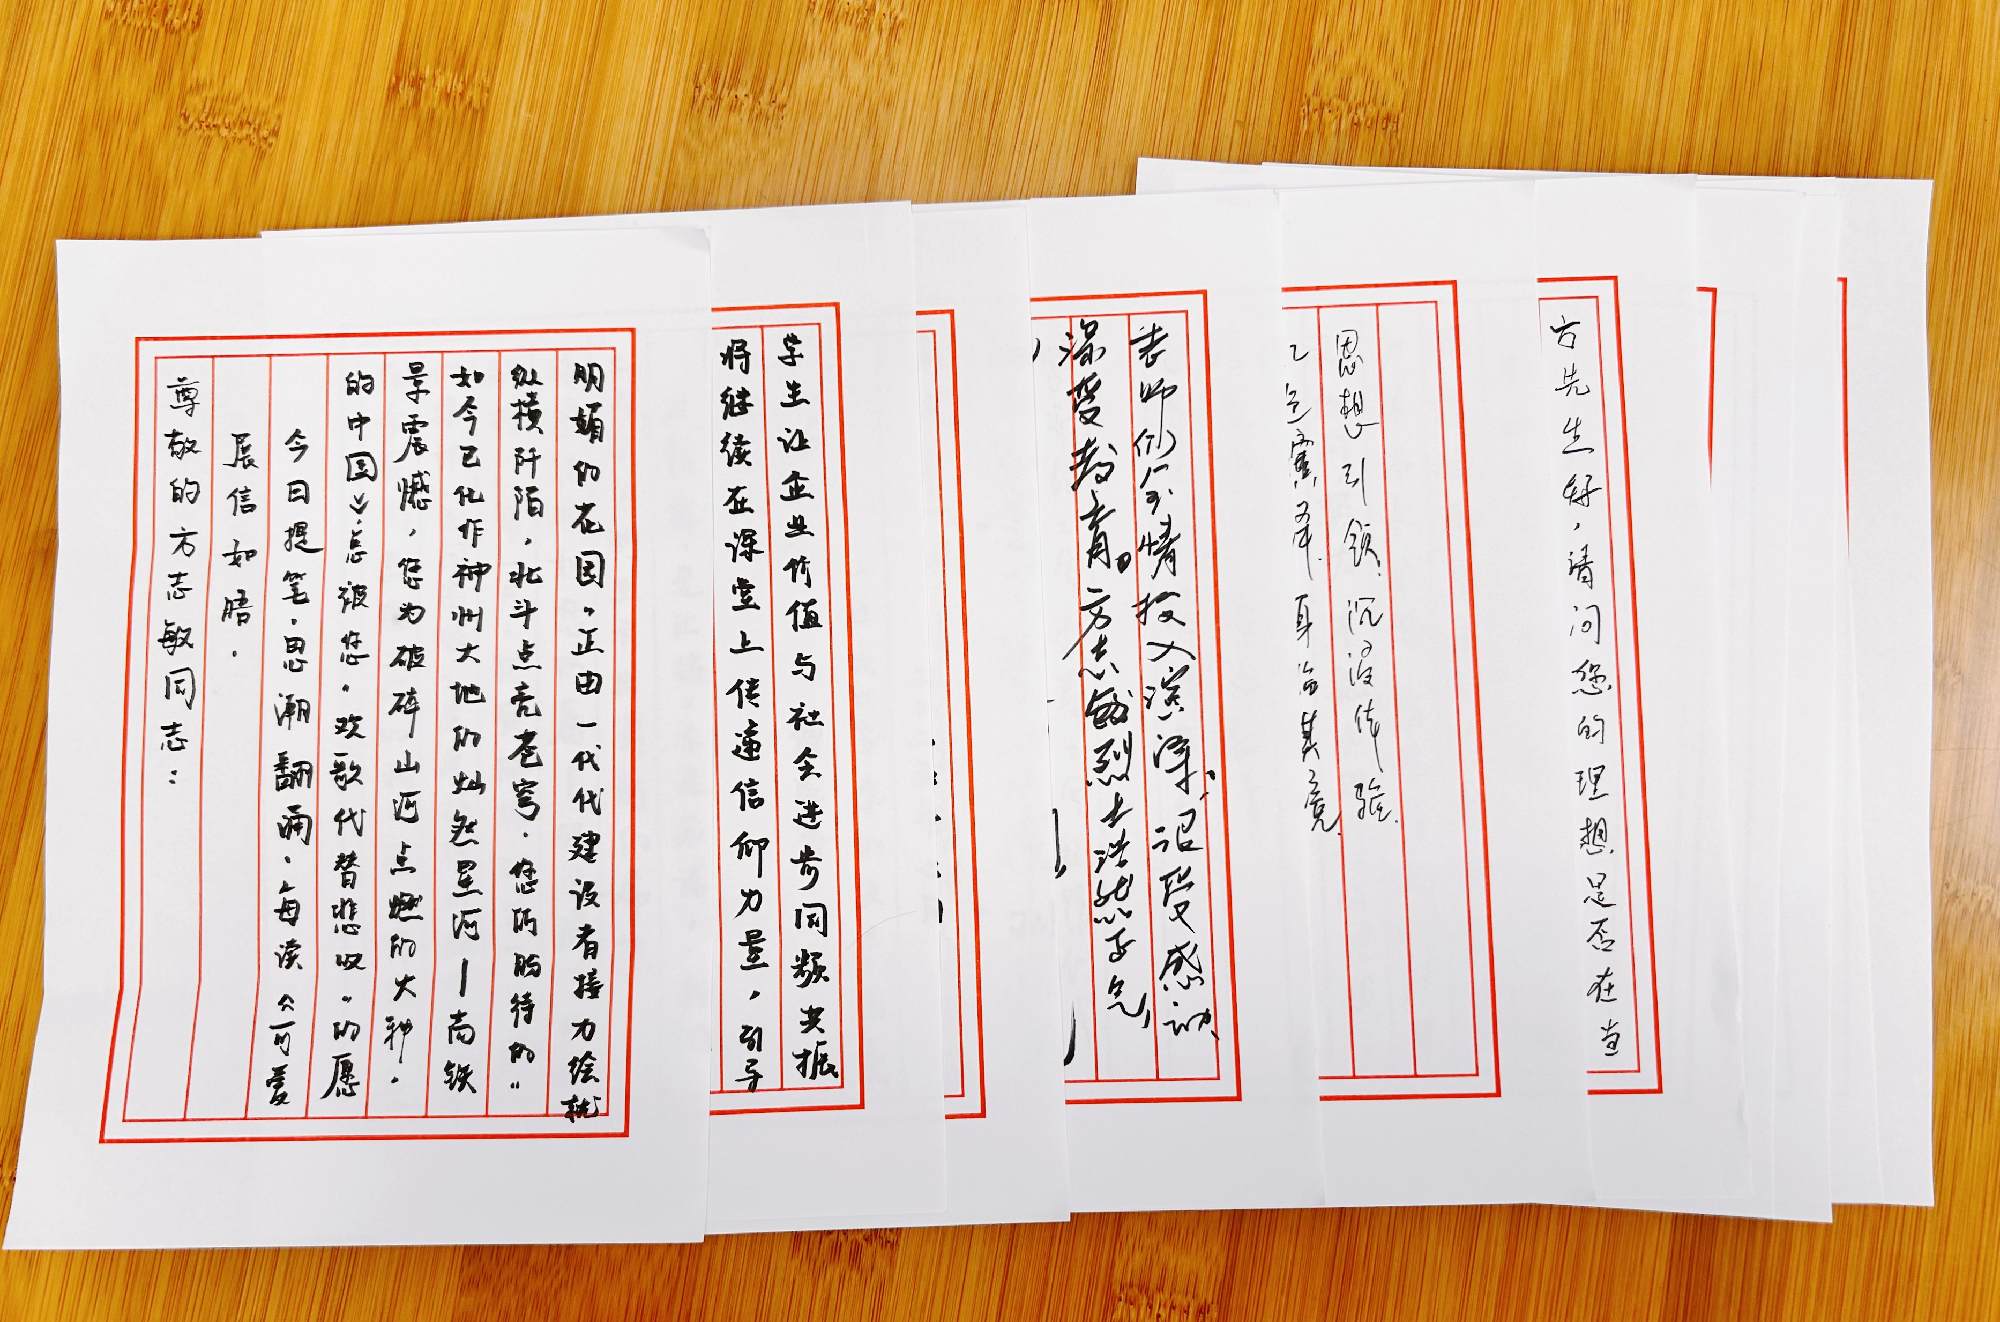 尊敬的方志敏同志：
展信如晤。
今日提笔，思潮翻涌。每读《可爱
的中国》，总被您“欢歌代替悲叹”的愿
景震撼，您为破碎山河点燃的火种，
如今已化作神州大地的灿然星河——高铁
纵横阡陌，北斗点亮苍穹。您所期待的“
明媚的花园”，正由一代代建设者接力绘就
将继续在课堂上传递信仰力量，引导
学生让企业价值与社会进步同频共振
深爱教育。方志敏烈士浩然正气，
老师们全情投入演绎、感动、
思想引领、沉浸体验。
方先生好，请问您的理想是否在当